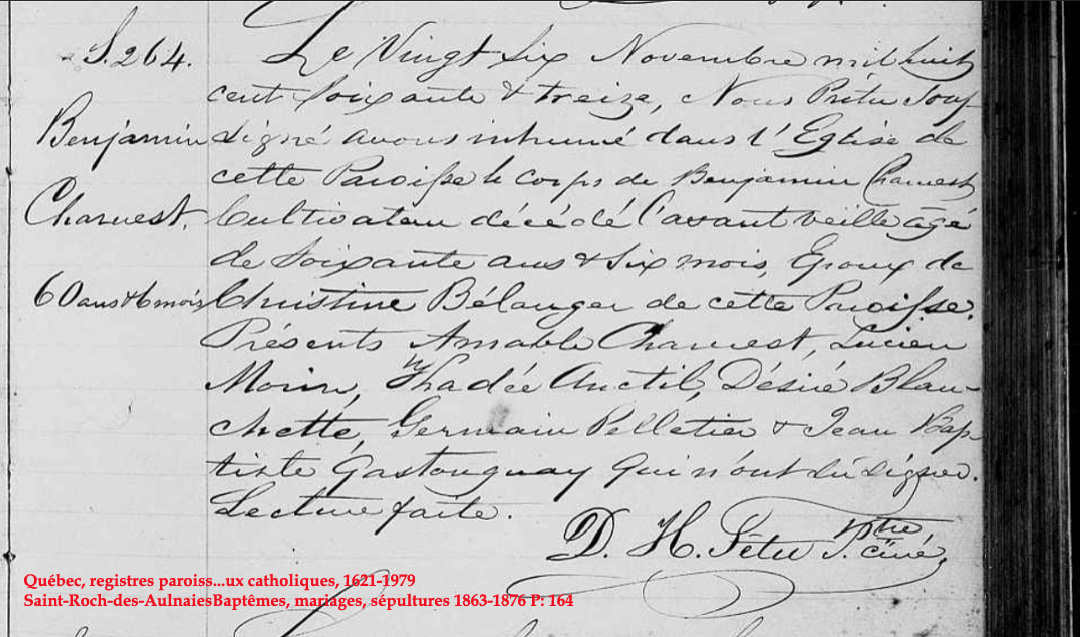 S.264.
Benjamin
Charvest.
60 ans & 6 mois
Le Vingt Six Novembre mil huit
cent Soixante & treize, Nous Prêtre Sous-
Signé avons inhumé dans l'Eglise de
cette Paroisse le corps de Benjamin Charvest
Cultivateur décédé l'avant veille âgé
de Soixante ans & Six mois, Epoux de
Christine Bélanger de cette Paroisse.
Présents Amable Charvest, Lucien
Morin, Thadée Anctil, Désiré Blan-
chette, Germain Pelletier & Jean Bap-
tiste Gastonguay qui n'ont sû signer.
Lecture faite.
D. H. Têtu Ptre
curé
Québec, registres paroiss...ux catholiques, 1621-1979
Saint-Roch-des-AulnaiesBaptêmes, mariages, sépultures 1863-1876 P: 164